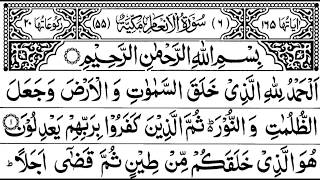 اٰيَاتُهَا ١٦٥ (٦) سُوْرَةُ الْاَنْعَامِ مَكِّيَّةٌ (٥٥) رُكُوْعَاتُهَا ٢٠
بِسْمِ اللّٰهِ الرَّحْمٰنِ الرَّحِيْمِ
اَلْحَمْدُ لِلّٰهِ الَّذِيْ خَلَقَ السَّمٰوٰتِ وَ الْاَرْضَ وَ جَعَلَ
الظُّلُمٰتِ وَ النُّوْرَ ؕ ثُمَّ الَّذِيْنَ كَفَرُوْا بِرَبِّهِمْ يَعْدِلُوْنَ ۝١
هُوَ الَّذِيْ خَلَقَكُمْ مِّنْ طِيْنٍ ثُمَّ قَضٰۤى اَجَلًا ؕ